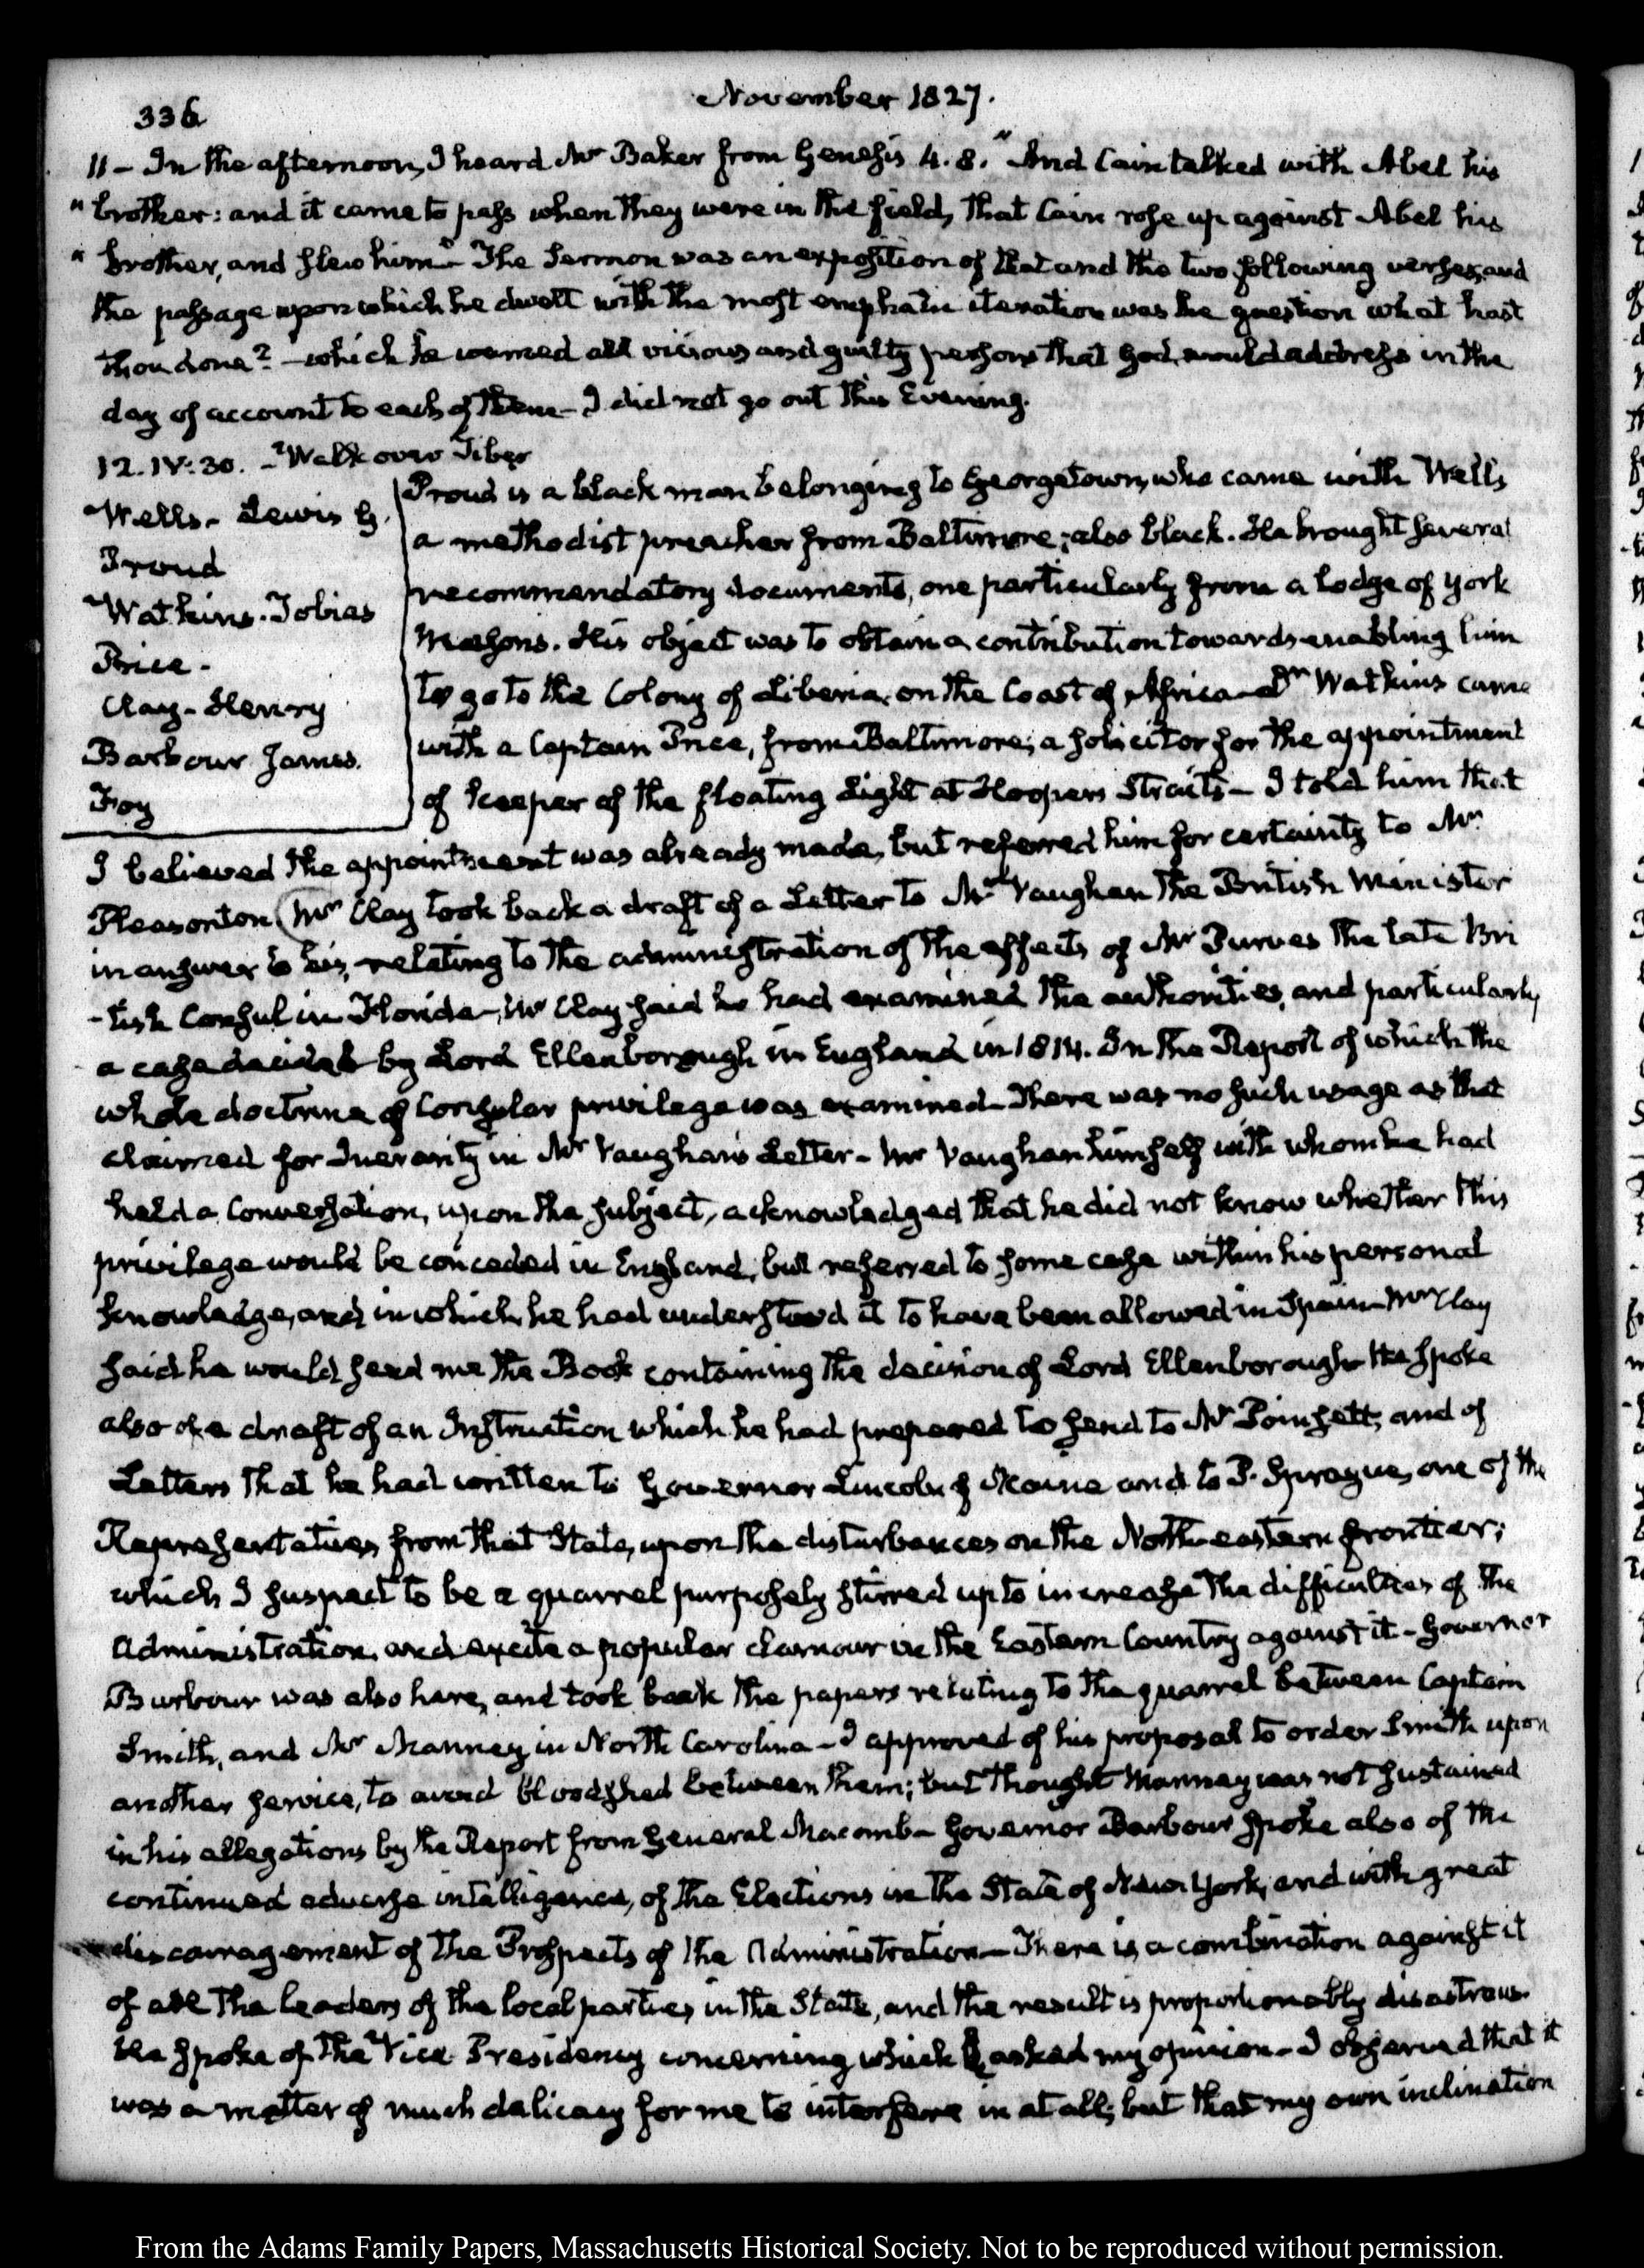 336
November 1827.
11 - In the afternoon, I heard Mr Baker from Genesis 4. 8. "And Cain talked with Abel his
" brother: and it came to pass when they were in the field, that Cain rose up against Abel his
" brother, and slew him" - The Sermon was an exposition of that and the two following verses, and
the passage upon which he dwelt with the most emphatic iteration was the question what hast
thou done? - which he warned all vicious and guilty persons that God would address in the
day of account to each of them - I did not go out this Evening.
12. IV:30. - Walk over Tiber
Wells - Lewis G.
Proud
Watkins. Tobias
Price -
Clay - Henry
Barbour James.
Foy
Proud is a black man belonging to Georgetown, who came with Wells
a methodist preacher from Baltimore; also black. He brought several
recommendatory documents, one particularly from a lodge of York
Masons. His object was to obtain a contribution towards enabling him
to go to the Colony of Liberia, on the Coast of Africa - Dr Watkins came
with a Captain Price, from Baltimore; a solicitor for the appointment
of keeper of the floating Light at Hoopers Straits - I told him that
I believed the appointment was already made, but referred him for certainty to Mr
Pleasonton. Mr Clay took back a draft of a Letter to Mr Vaughan the British Minister
in answer to his, relating to the administration of the effects of Mr Purves the late Bri
-tish Consul in Florida - Mr Clay said he had examined the authorities, and particularly
a case decided by Lord Ellenborough in England in 1814. In the Report of which the
whole doctrine of Consular privilege was examined - There was no such usage as that
claimed for Inerarity in Mr Vaughan's Letter - Mr Vaughan himself with whom he had
held a Conversation, upon the subject, acknowledged that he did not know whether this
privilege would be conceded in England; but referred to some case within his personal
knowledge, and in which he had understood it to have been allowed in Spain - Mr Clay
said he would send me the Book containing the decision of Lord Ellenborough - He spoke
also of a draft of an Instruction which he had prepared to send to Mr Poinsett, and of
Letters that he had written to Governor Lincoln of Maine and to P. Sprague, one of the
Representatives from that State, upon the disturbances on the North-eastern frontier;
which I suspect to be a quarrel purposely stirred up to increase the difficulties of the
Administration, and excite a popular clamour in the Eastern Country against it - Governor
Burbour was also here, and took back the papers relating to the quarrel between Captain
Smith, and Mr Manney in North Carolina - I approved of his proposal to order Smith upon
another service, to avoid bloodshed between them; but thought Manney was not sustained
in his allegations by the Report from General Macomb - Governor Barbour spoke also of the
continued adverse intelligence, of the Elections in the State of New York, and with great
discouragement of the Prospects of the Administration - There is a combination against it
of all the leaders of the local parties in the State, and the result is proportionably disastrous.
He spoke of the Vice Presidency concerning which he asked my opinion - I observed that it
was a matter of much delicacy for me to interfere in at all; but that my own inclination
From the Adams Family Papers, Massachusetts Historical Society. Not to be reproduced without permission.